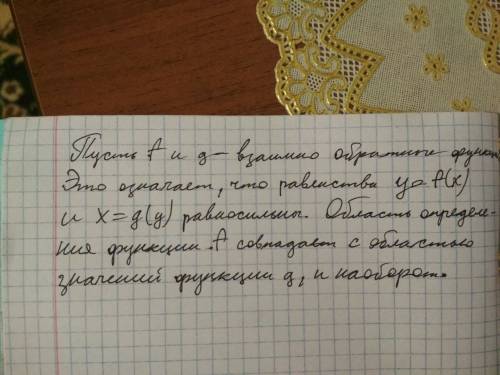 Пусть f и g - взаимно обратные функции
Это означает, что равенства y = f(x)
и x = g(y) равносильны. Область определе-
ния функции f совпадает с областью
значений функции g, и наоборот.